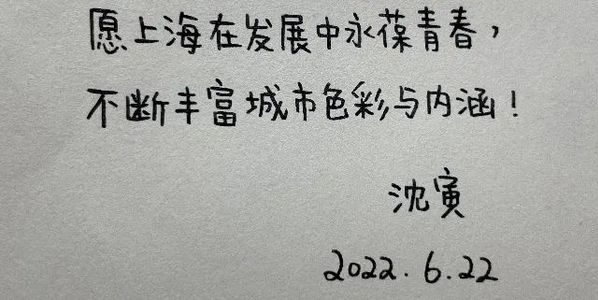 愿上海在发展中永葆青春，
不断丰富城市色彩与内涵！
沈寅
2022.6.22